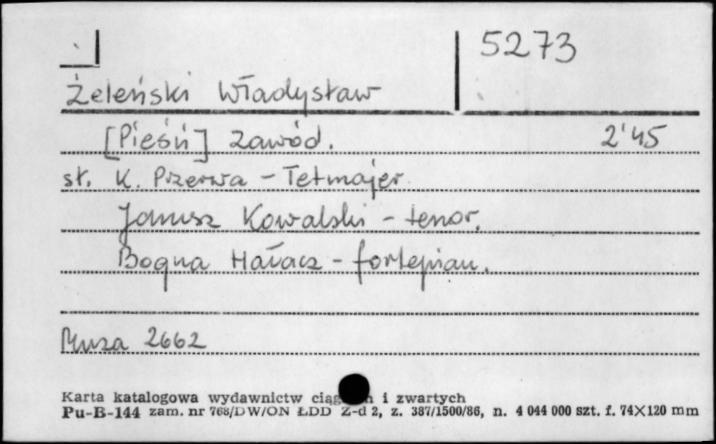 5273
Żeleński Władysław
[Pieśń] Zawód. 2'45
sł. K. Przerwa - Tetmajer
Janusz Kowalski - tenor,
Bogna Hałacz - fortepian.
Muza 2662
Karta katalogowa wydawnictw i zwartych
Pu-B-144 zam. nr 768/DW/ON ŁDD Z-d 2, z. 387/1500/86, n. 4 044 000 szt. f. 74×120 mm